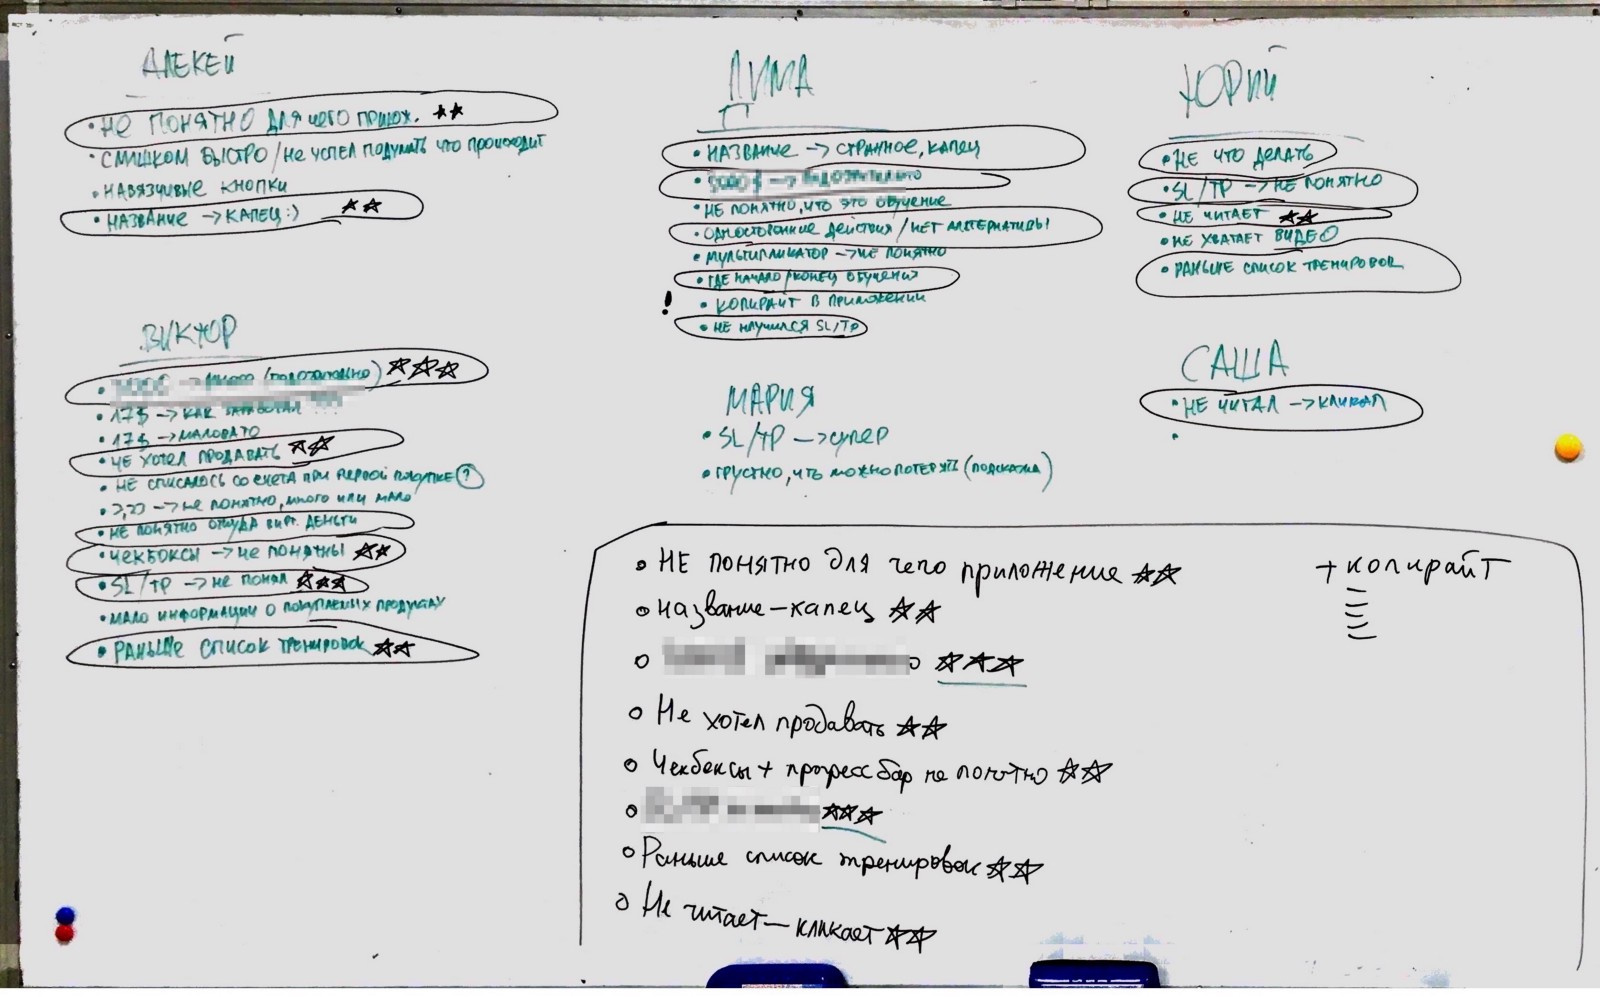 АЛЕКЕЙ
• НЕ ПОНЯТНО ДЛЯ ЧЕГО ПРИЛОЖ. ★★
• СЛИШКОМ БЫСТРО / НЕ УСПЕЛ ПОДУМАТЬ ЧТО ПРОИСХОДИТ
• НАВЯЗЧИВЫЕ КНОПКИ
• НАЗВАНИЕ → КАПЕЦ :) ★★
ВИКТОР
• МНОГО (ПОДОЗРИТЕЛЬНО) ★★★
• 17$ → КАК ЗАРАБОТАЛ ???
• 17$ → МАЛОВАТО
• НЕ ХОТЕЛ ПРОДАВАТЬ ★★
• НЕ СПИСАЛОСЬ СО СЧЕТА ПРИ ПЕРВОЙ ПОКУПКЕ ?
• → НЕ ПОНЯТНО, МНОГО ИЛИ МАЛО
• НЕ ПОНЯТНО ОТКУДА ВИРТ. ДЕНЬГИ
• ЧЕКБОКСЫ → НЕ ПОНЯТНЫ ★★
• SL/TP → НЕ ПОНЯЛ ★★★
• МАЛО ИНФОРМАЦИИ О ПОКУПАЕМЫХ ПРОДУКТАХ
• РАНЬШЕ СПИСОК ТРЕНИРОВОК ★★
ДИМА
• НАЗВАНИЕ → СТРАННОЕ, КАПЕЦ
• НЕ ПОНЯТНО, ЧТО ЭТО ОБУЧЕНИЕ
• ОДНОСТОРОННИЕ ДЕЙСТВИЯ / НЕТ АЛЬТЕРНАТИВЫ
• МУЛЬТИПЛИКАТОР → НЕ ПОНЯТНО
• ГДЕ НАЧАЛО/КОНЕЦ ОБУЧЕНИЯ
! • КОПИРАЙТ В ПРИЛОЖЕНИИ
• НЕ НАУЧИЛСЯ SL/TP
МАРИЯ
• SL/TP → СУПЕР
• ГРУСТНО, ЧТО МОЖНО ПОТЕРЯТЬ (ПОДСКАЗКА)
ЮРИЙ
• НЕ ЧТО ДЕЛАТЬ
• SL/TP → НЕ ПОНЯТНО
• НЕ ЧИТАЕТ ★★
• НЕ ХВАТАЕТ ВИДЕО
• РАНЬШЕ СПИСОК ТРЕНИРОВОК
САША
• НЕ ЧИТАЛ → КЛИКАЛ
• НЕ ПОНЯТНО для чего приложение ★★
• название – капец ★★
★★★
• Не хотел продавать ★★
• Чекбоксы + прогресс бар не понятно ★★
★★★
• Раньше список тренировок ★★
• Не читает – кликает ★★
+ копирайт